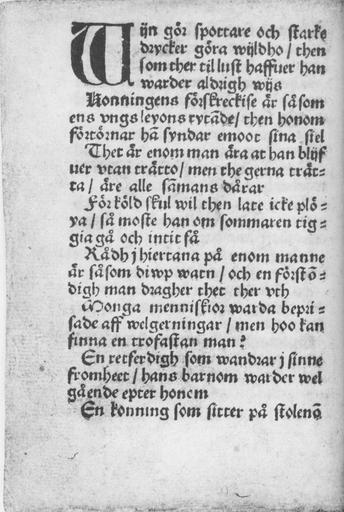 Wijn gör spottare och starke
drycker göra wijldho / then
som ther til lust haffuer han
warder aldrigh wijs
Konningens förskreckilse är såsom
ens vngs leyons rytāde / then honom
förtörnar hā syndar emoot sina siel
Thet är enom man ära at han blijf
uer vtan trätto / men the gerna trät=
ta / äre alle samans dårar
För köld skul wil then late icke plö=
ya / så moste han om sommaren tig=
gia gå och intit få
Rådh j hiertana på enom manne
är såsom diwp watn / och en förstō=
digh man dragher thet ther vth
Monga menniskior warda bepri=
sade aff welgerningar / men hoo kan
finna en trofastan man?
En retferdigh som wandrar j sinne
fromheet / hans barnom warder wel
gående epter honom
En konning som sitter på stolenō